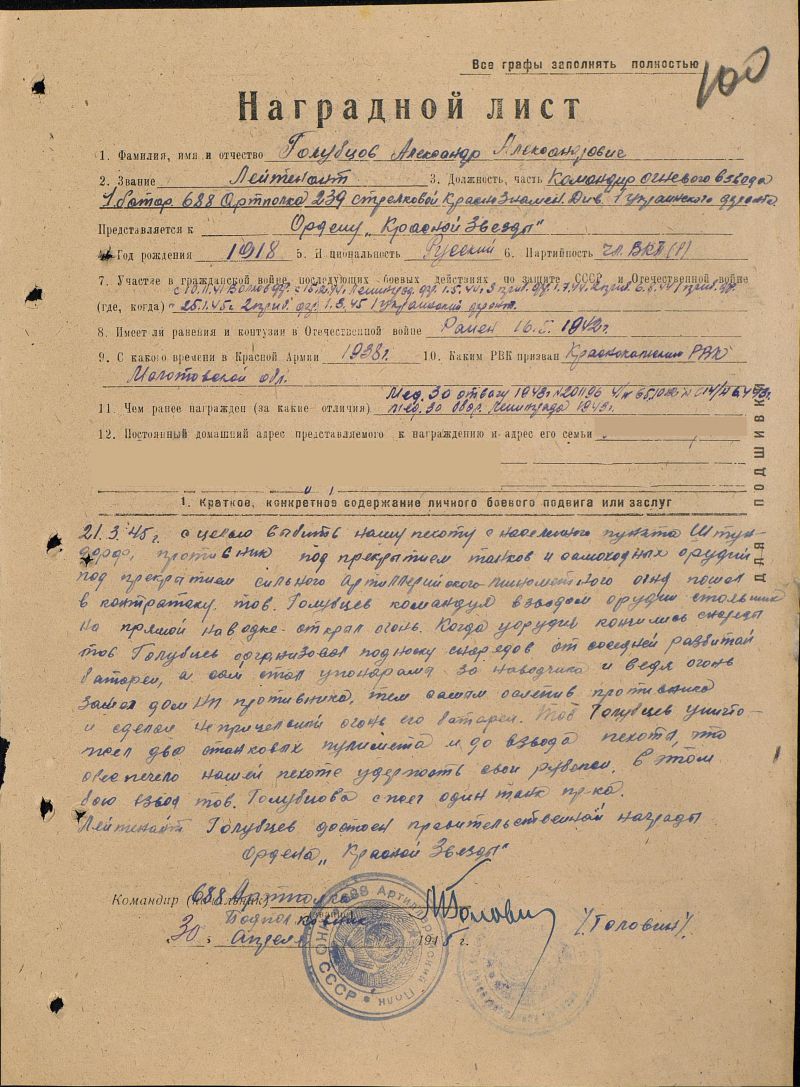 Все графы заполнять полностью
100
Наградной лист
1. Фамилия, имя и отчество Голубцов Александр Александрович
2. Звание Лейтенант 3. Должность, часть Командир огневого взвода
1 батар. 688 Артполка 239 стрелковой Краснознамен. Див. 1 Украинского фронта
Представляется к Ордену „Красной Звезды"
4. Год рождения 1918 5. Национальность Русский 6. Партийность чл. ВКП(б)
7. Участие в гражданской войне, последующих боевых действиях по защите СССР и Отечественной войне
(где, когда) 25.1.45г. 1.3.45 1 Украинский фронт.
8. Имеет ли ранения и контузии в Отечественной войне Ранен 16. 1942г.
9. С какого времени в Красной Армии 1938г. 10. Каким РВК призван РВК
Молотовской обл.
Мед. За отвагу 1943г.
11. Чем ранее награжден (за какие отличия) Мед. За обор. Ленинграда 1943г.
12. Постоянный домашний адрес представляемого к награждению и адрес его семьи
ДЛЯ ПОДШИВКИ
1. Краткое, конкретное содержание личного боевого подвига или заслуг
21.3.45г. с целью выбить нашу пехоту с населенного пункта Штун-
дорф, противник под прекрытием танков и самоходных орудий
под прекрытием сильного Артиллерийского-пинометного огня пошел
в контратаку. тов. Голубцев командуя взводом орудий стоявших
на прямой наводке открал огонь. Когда у орудия кончились снаряды
тов Голубцев организовал подноску снарядов от соседней развитай
батареи, а сам стал у понорама за наводчика и ведя огонь
зажег дом НП противника, тем самым ослепив противника
и сделал неприцельной огонь его батареи. Тов Голубцев уничто-
жел два станковых пулимета и до взвода пехоты, что
обеспечело нашей пехоте удержать свои рубежи. В этом
бою взвод тов. Голубцова сжег один танк пр-ка.
Лейтенант Голубцев достоен правительственной награды
Ордена „Красной Звезды"
Командир (начальник) 688 Артполка
Подполковник
/Головин/
30 Апреля 1945 г.
688 Артиллерийский Полк
СССР